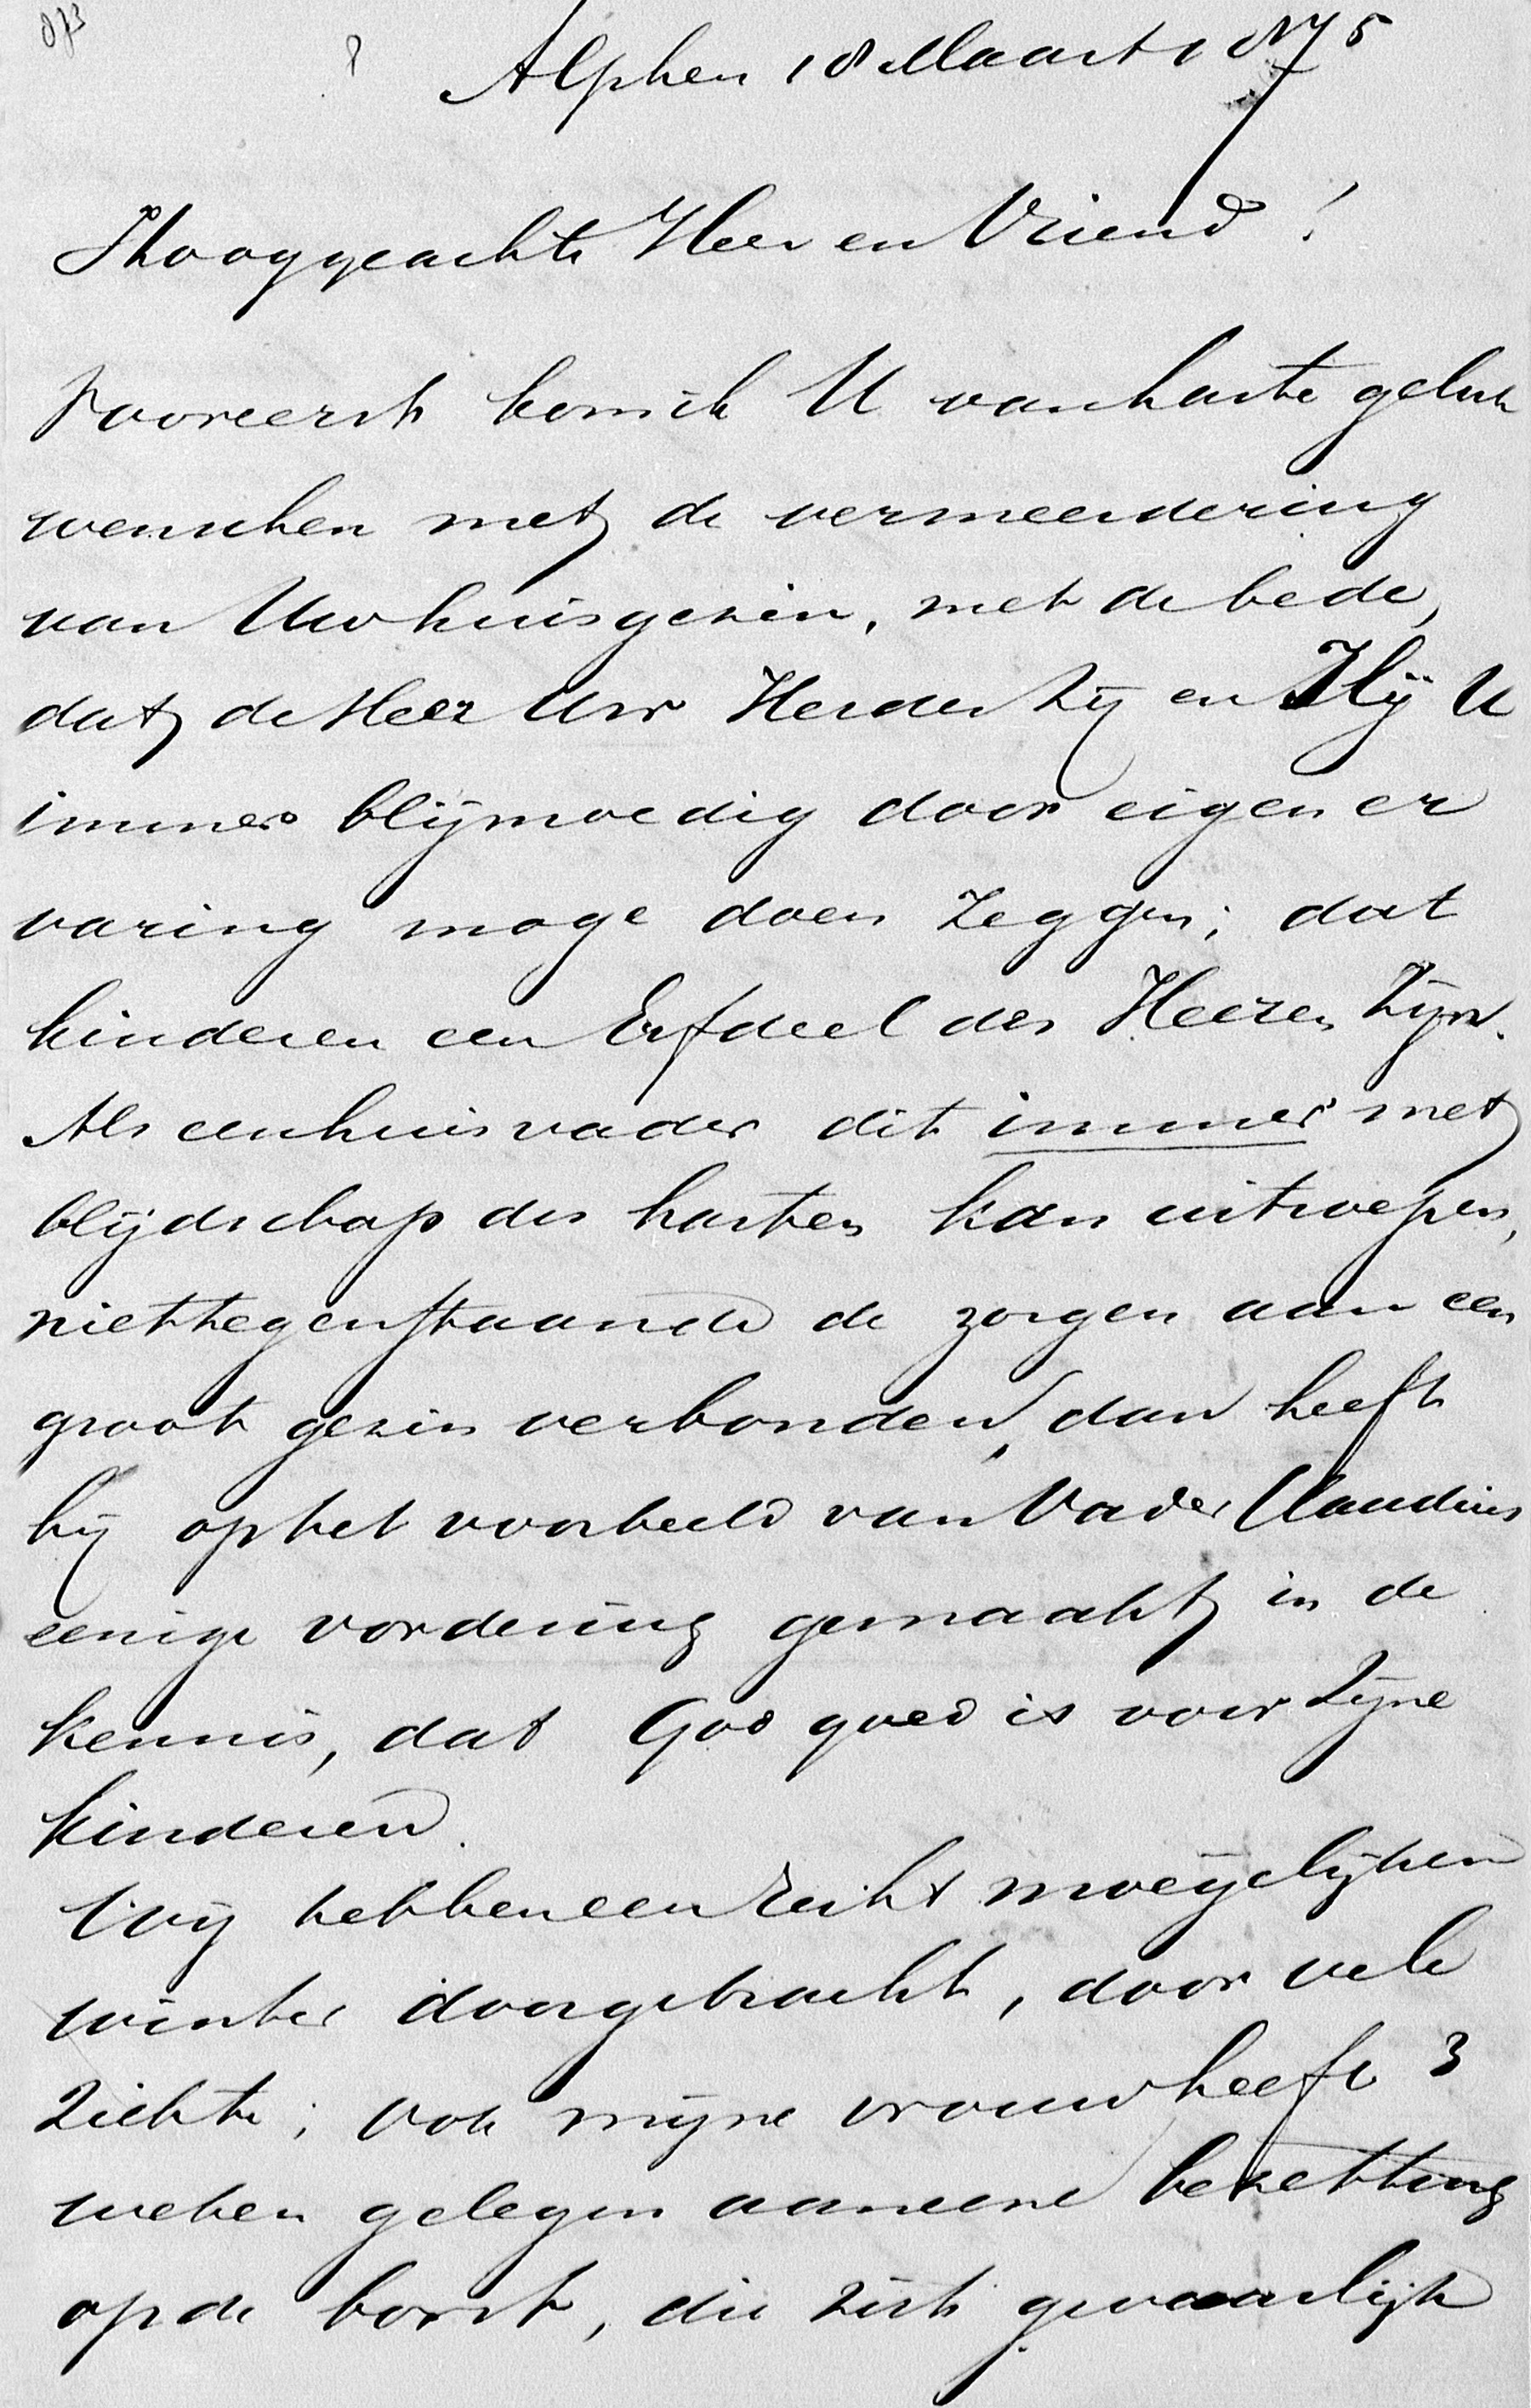 Alphen 18 Maart 1875
Hooggeachte Heer en Vriend!
Vooreerst kom ik U van harte geluk
wenschen met de vermeerdering
van Uw huisgezin, met de bede,
dat de Heer Uw Herder zij en Hij U
immer blijmoedig door eigen er
varing moge doen zeggen; dat
kinderen een Erfdeel des Heeren zijn.
Als een huisvader dit immer met
blijdschap des harten kan uitroepen,
niettegenstaande de zorgen aan een
groot gezin verbonden, dan heeft
hij op het voorbeeld van Vader Claudius
eenige vordering gemaakt in de
kennis, dat God goed is voor Zijne
kinderen.
Wij hebben een recht moeijelijken
winter doorgebracht, door vele
ziekte; ook mijne vrouw heeft 3
weken gelegen aan eene bezetting
op de borst, die zich gevaarlijk